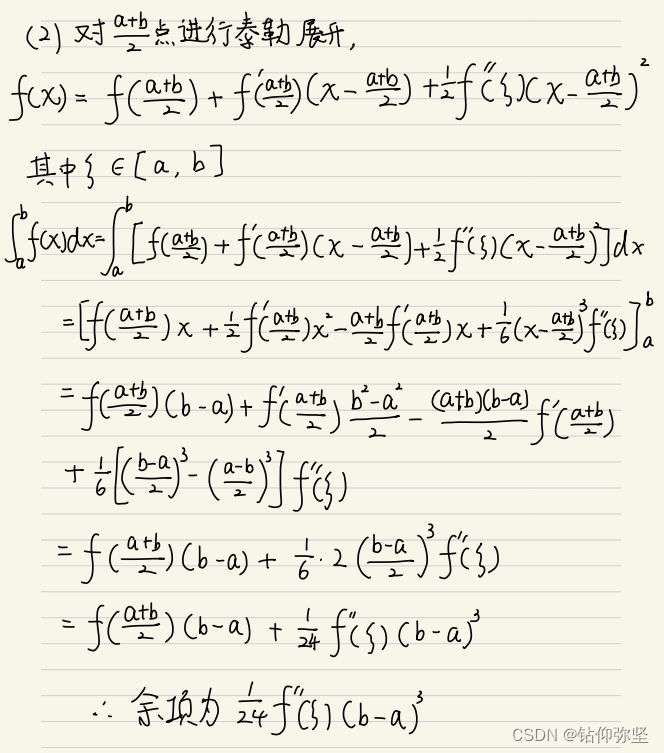 (2) 对 (a+b)/2 点进行泰勒展开,
f(x) = f((a+b)/2) + f'((a+b)/2)(x - (a+b)/2) + 1/2 f''(ξ)(x - (a+b)/2)²
其中 ξ ∈ [a, b]
∫ₐᵇ f(x)dx = ∫ₐᵇ [f((a+b)/2) + f'((a+b)/2)(x - (a+b)/2) + 1/2 f''(ξ)(x - (a+b)/2)²]dx
= [f((a+b)/2)x + 1/2 f'((a+b)/2)x² - (a+b)/2 f'((a+b)/2)x + 1/6 (x - (a+b)/2)³ f''(ξ)]ₐᵇ
= f((a+b)/2)(b-a) + f'((a+b)/2) (b²-a²)/2 - (a+b)(b-a)/2 f'((a+b)/2)
+ 1/6 [((b-a)/2)³ - ((a-b)/2)³] f''(ξ)
= f((a+b)/2)(b-a) + 1/6 · 2 ((b-a)/2)³ f''(ξ)
= f((a+b)/2)(b-a) + 1/24 f''(ξ)(b-a)³
∴ 余项为 1/24 f''(ξ)(b-a)³
CSDN @钻仰弥坚